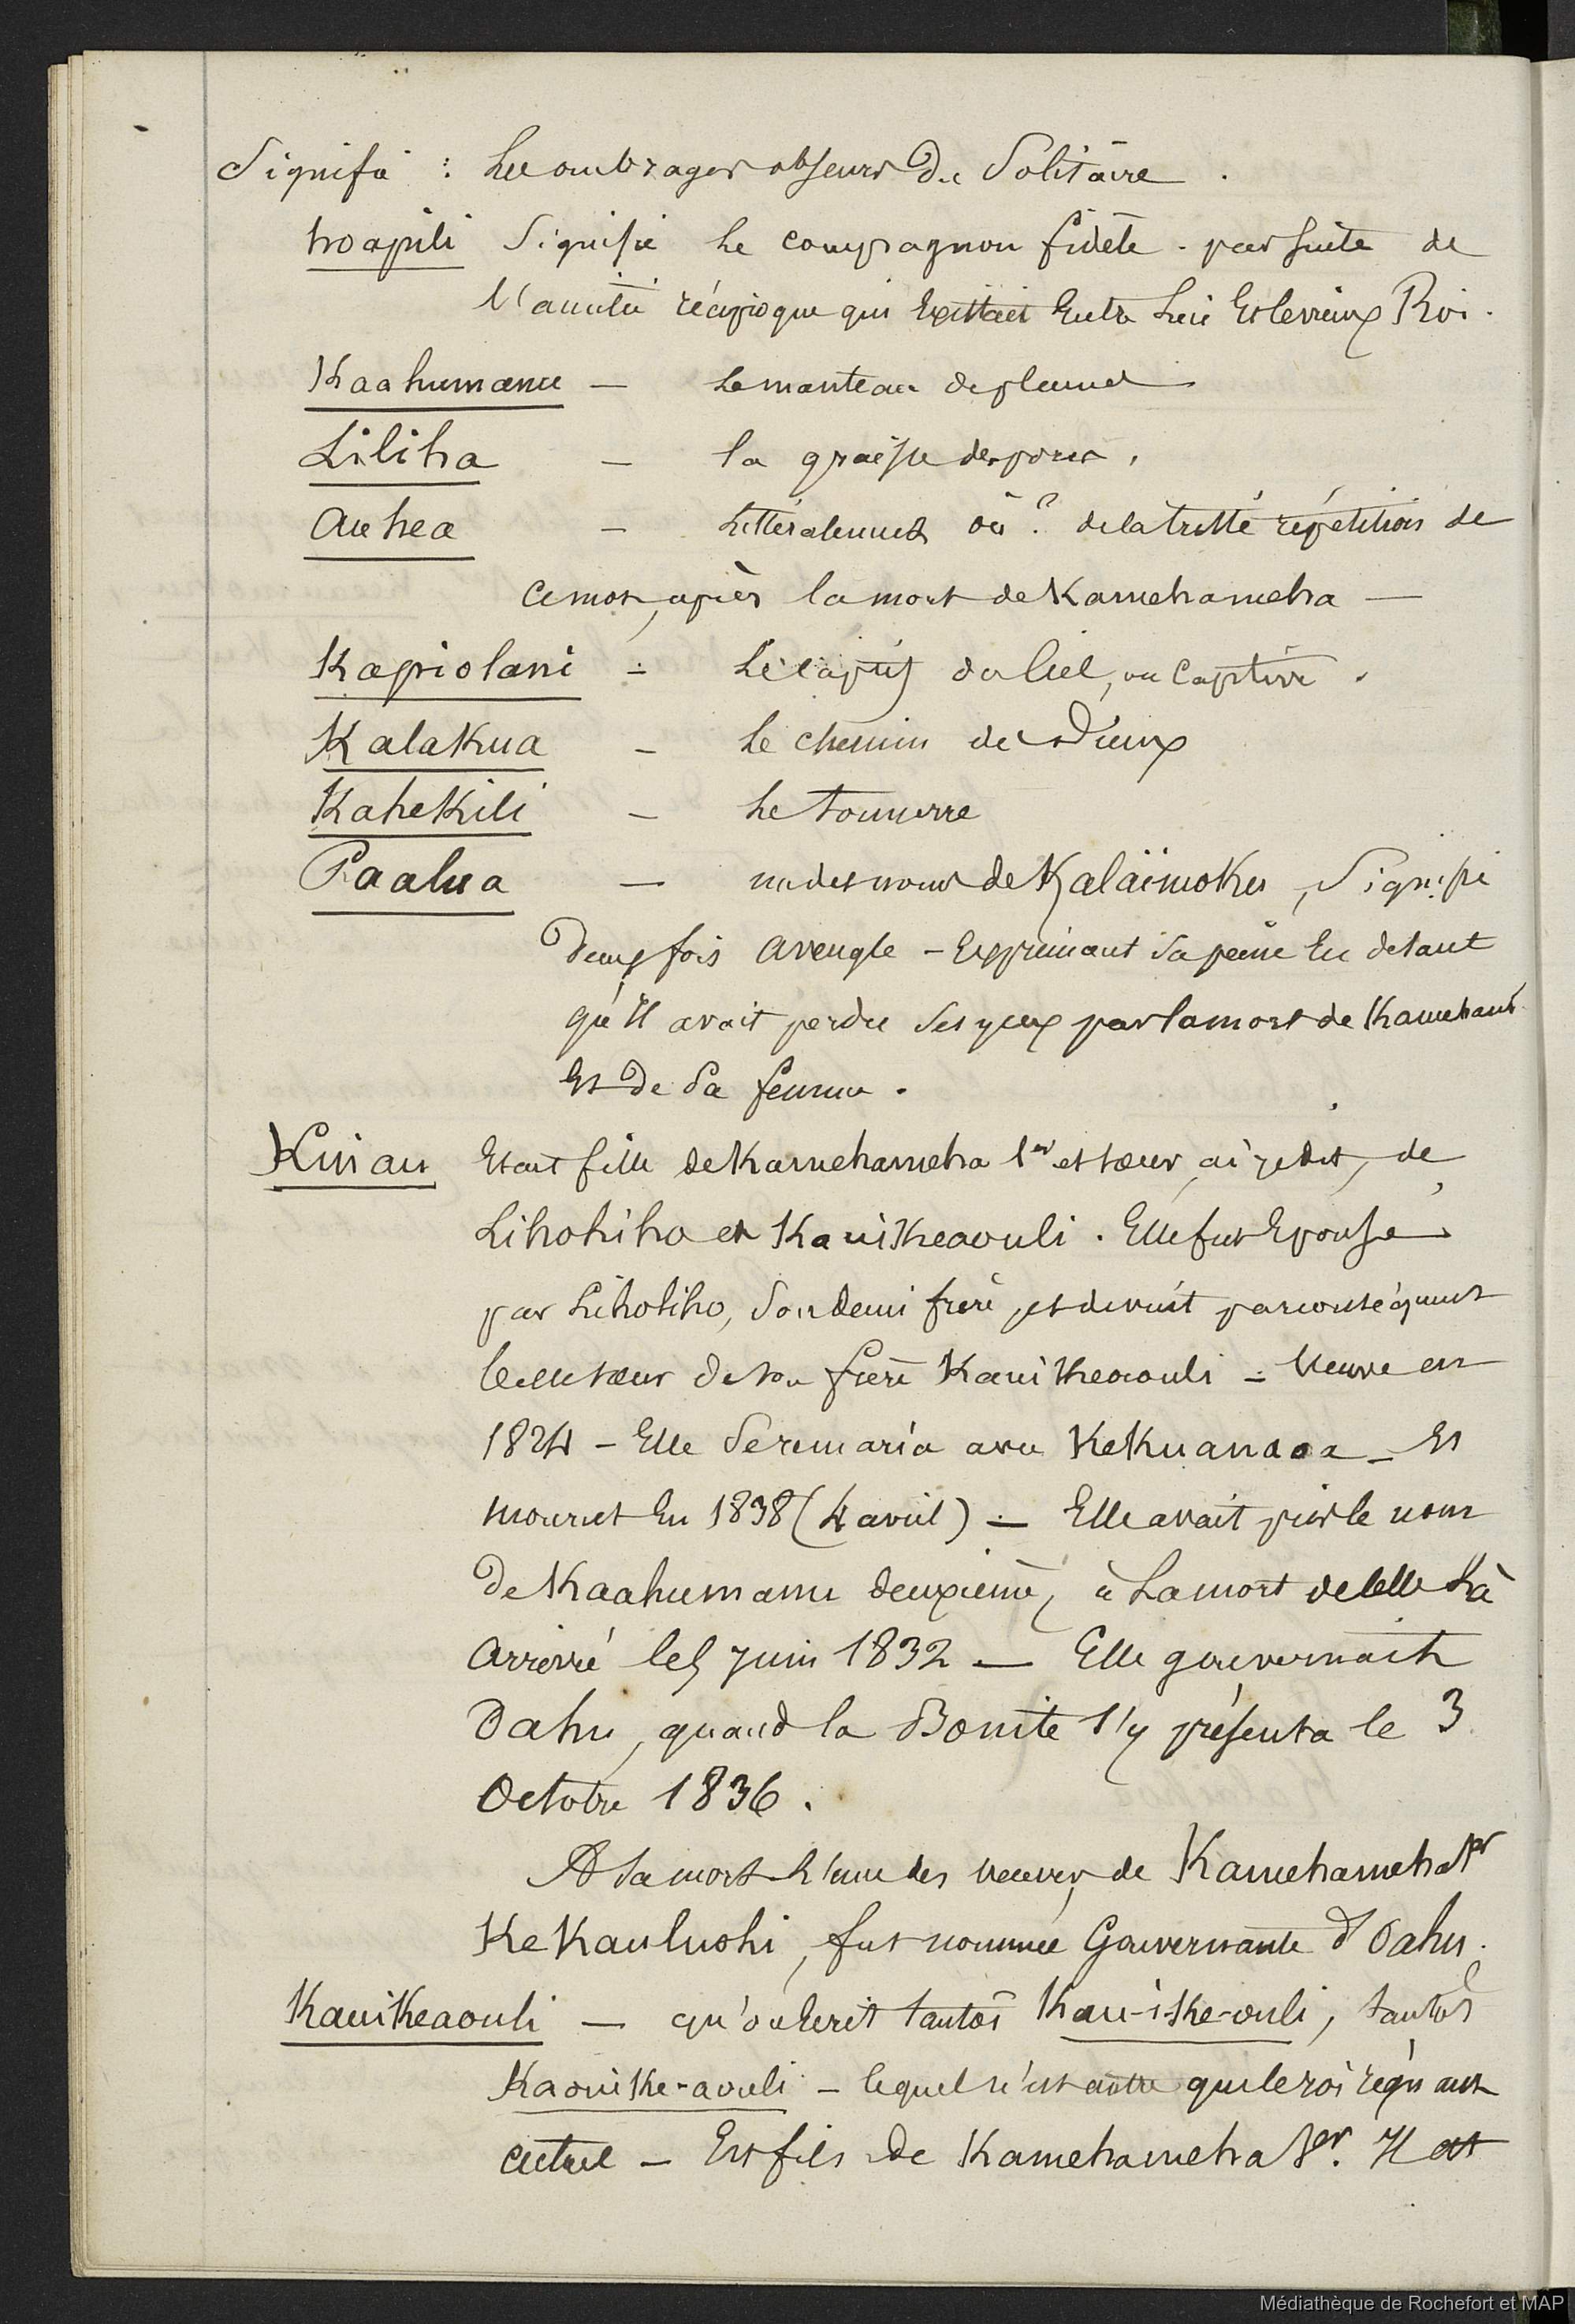 Signifie : Les ombrages obscurs du Solitaire.
hoapili Signifie le compagnon fidèle - par suite de
l'amitié réciproque qui Existait Entre Lui Et le vieux Roi.
Kaahumanu — le manteau de plumes
Liliha — la graisse de porc.
Auhea — Littéralement où ? de la triste répétition de
ce mot, après la mort de Kamehameha —
Kapiolani - Le Captif du Ciel, ou Captive.
Kalakua - Le chemin de Dieux
Kahekili - Le tonnerre
Paalua — un des noms de Kalaïmoku, Signifie
Deux fois aveugle - Exprimant Sa peine En disant
qu'Il avait perdu Ses yeux par la mort de Kameham
Et De Sa femme.
Kinau Etait fille de Kamehameha 1er et sœur, ai-je dit, de
Lihohiho et Kauikeaouli. Elle fut Epousée
par Liholiho, Son demi frère, et devint par conséquent
belle sœur de son frère Kauikeaouli - Veuve en
1824 - Elle Se remaria avec Kekuanaoa - Et
mourut En 1838 (4 avril) — Elle avait pris le nom
De Kaahumanu deuxième, à La mort de celle là
arrivé le 5 Juin 1832 — Elle gouvernait
Oahu, quand la Bonite s'y présenta le 3
Octobre 1836.
A Sa mort L'une des veuves de Kamehameha 1er
Kekauluohi, fut nommée Gouvernante d'Oahu.
Kauikeaouli — qu'on Ecrit tantôt Kau-i-ke-ouli, tantôt
Kaouike-aouli - lequel n'est autre que le roi régnant
actuel - Est fils de Kamehameha 1er. Il est
Médiathèque de Rochefort et MAP